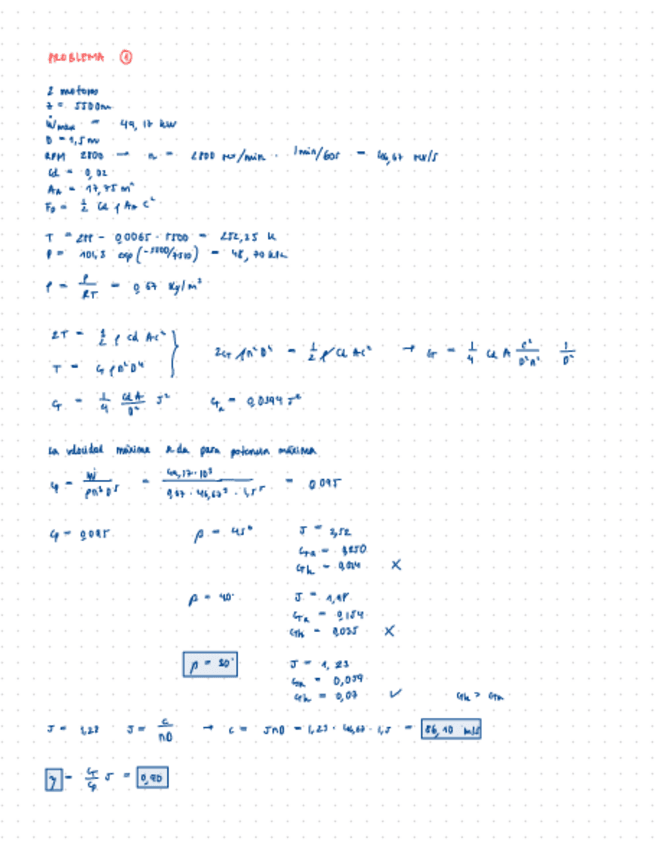 PROBLEMA ①
2 motores
z = 5500m
Ẇmax = 49,17 kW
D = 1,5 m
RPM 2800 → n = 2800 rev/min · 1min/60s = 46,67 rev/s
Cd = 0,02
AA = 17,75 m²
FD = 1/2 Cd ρ AA c²
T = 288 - 0,0065 · 5500 = 252,25 K
P = 101,3 exp(-5500/7510) = 48,70 kPa
ρ = P/RT = 0,67 Kg/m³
2T = 1/2 ρ Cd Ac²
T = CT ρn²D⁴
2CT ρn²D⁴ = 1/2 ρ Cd Ac² → CT = 1/4 Cd A c²/D²n² 1/D²
CT = 1/4 CdA/D² J² CTa = 0,0394 J²
La velocidad máxima se da para potencia máxima
CP = Ẇ/ρn³D⁵ = 49,17·10³/0,67 · 46,67³ · 1,5⁵ = 0,095
CP = 0,095 β = 45° J = 2,52
CTa = 0,250
CTh = 0,024 X
β = 40° J =
CTa = 0,154
CTh = 0,035 X
β = 30° J = 1,23
CTa = 0,059
CTh = 0,07 ✓ CTh > CTa
J = 1,23 J = c/nD → c = JnD = 1,23 · 46,67 · 1,5 = 86,10 m/s
η = CT/CP J = 0,90